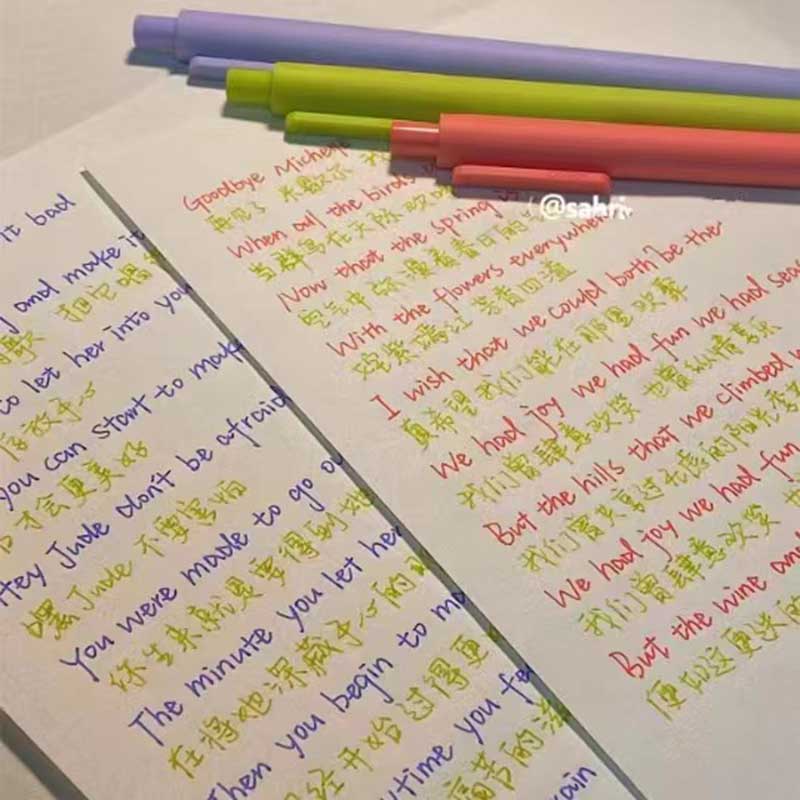 it bad
and make it
歌 把它唱
to let her into you
你才会更美好
you can start to make
Hey Jude don't be afraid
嘿 Jude 不要害怕
You were made to go ou
你生来就是要得到她
The minute you let her
在将她深藏于心的
Then you begin to ma
经开始过得更
time you fe
痛苦的
Goodbye Michelle
再见了 米歇尔
When all the birds
当群鸟在天际欢
Now that the spring
空气中弥漫着春日的
With the flowers everywhere
姹紫嫣红 芳香四溢
I wish that we could both be the
真希望我们能在那里欢聚
We had joy we had fun we had seas
我们曾肆意欢笑 也曾纵情喜乐
But the hills that we climbed w
我们曾共享过无虑的阳光
We had joy we had fun
我们曾肆意欢笑
But the wine and
便如这更迭的
@sahri